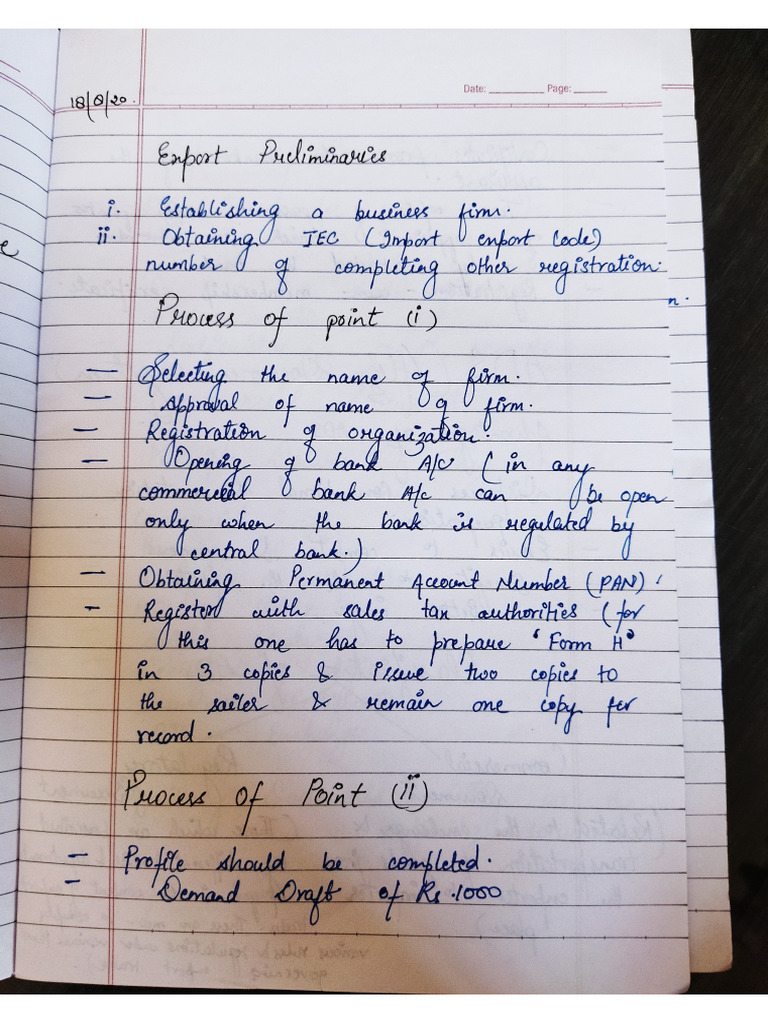 Date: ________ Page: _____
18/8/20.
Export Preliminaries
i. Establishing a business firm.
ii. Obtaining IEC (Import export Code)
number of completing other registration.
Process of point (i)
— Selecting the name of firm.
— Approval of name of firm.
— Registration of organization.
— Opening of bank A/C (in any
commercial bank A/c can be open
only when the bank is regulated by
central bank.)
— Obtaining Permanent Account Number (PAN).
- Register with sales tax authorities (for
this one has to prepare 'Form H'
in 3 copies & issue two copies to
the sailer & remain one copy for
record.
Process of Point (ii)
— Profile should be completed.
— Demand Draft of Rs.1000
e
n.